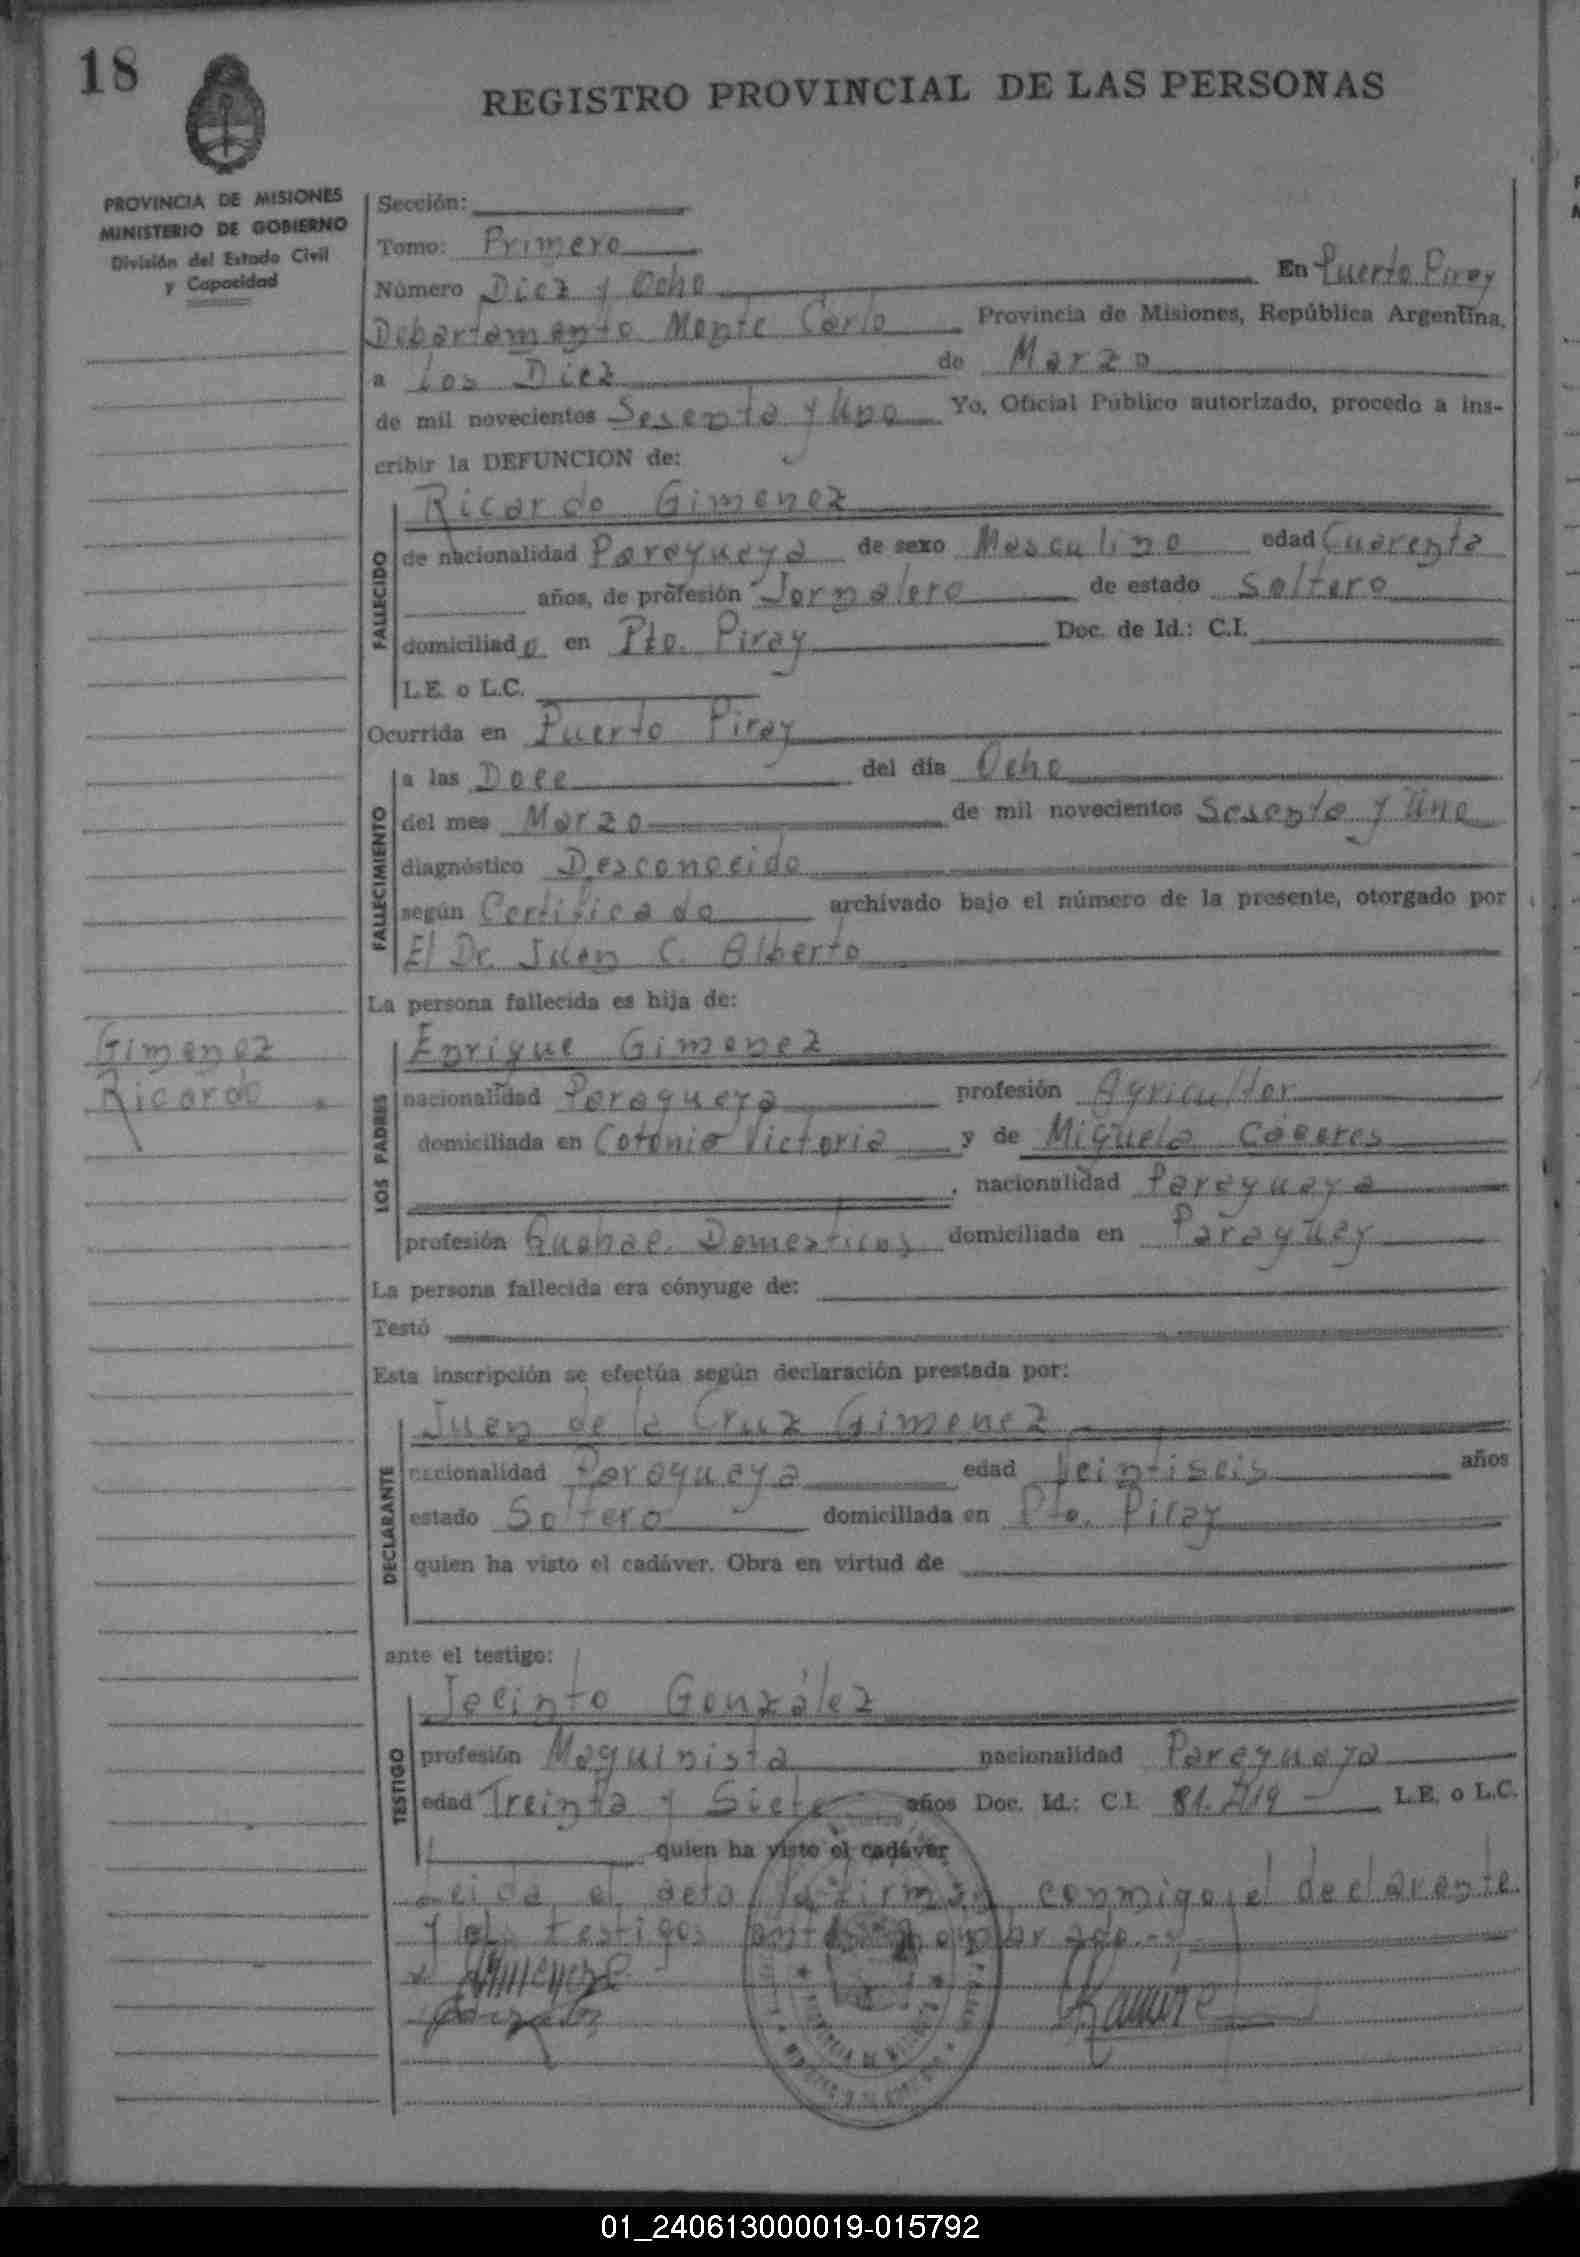 18
REGISTRO PROVINCIAL DE LAS PERSONAS
PROVINCIA DE MISIONES
MINISTERIO DE GOBIERNO
División del Estado Civil
y Capacidad
Sección:
Tomo: Primero
Número Diez y Ocho En Puerto Piray
Departamento Monte Carlo Provincia de Misiones, República Argentina,
a Los Diez de Marzo
de mil novecientos Sesenta y Uno Yo, Oficial Público autorizado, procedo a ins-
cribir la DEFUNCION de:
FALLECIDO
Ricardo Gimenez
de nacionalidad Paraguaya de sexo Masculino edad Cuarenta
años, de profesión Jornalero de estado Soltero
domiciliado en Pto. Piray Doc. de Id.: C.I.
L.E. o L.C.
Ocurrida en Puerto Piray
FALLECIMIENTO
a las Doce del día Ocho
del mes Marzo de mil novecientos Sesenta y Uno
diagnóstico Desconocido
según Certificado archivado bajo el número de la presente, otorgado por
El Dr. Juan C. Alberto
La persona fallecida es hija de:
Gimenez
Ricardo
LOS PADRES
Enrique Gimenez
nacionalidad Paraguaya profesión Agricultor
domiciliada en Colonia Victoria y de Miguela Cáceres
, nacionalidad Paraguaya
profesión Domesticos domiciliada en Paraguay
La persona fallecida era cónyuge de:
Testó
Esta inscripción se efectúa según declaración prestada por:
DECLARANTE
Juan de la Cruz Gimenez
nacionalidad Paraguaya edad Veintiseis años
estado Soltero domiciliada en Pto. Piray
quien ha visto el cadáver. Obra en virtud de
ante el testigo:
TESTIGO
Jacinto González
profesión Maquinista nacionalidad Paraguaya
edad Treinta y Siete años Doc. Id.: C.I. L.E. o L.C.
quien ha visto el cadáver
Leida el acta la firman conmigo, el declarante
y testigos
01_240613000019-015792